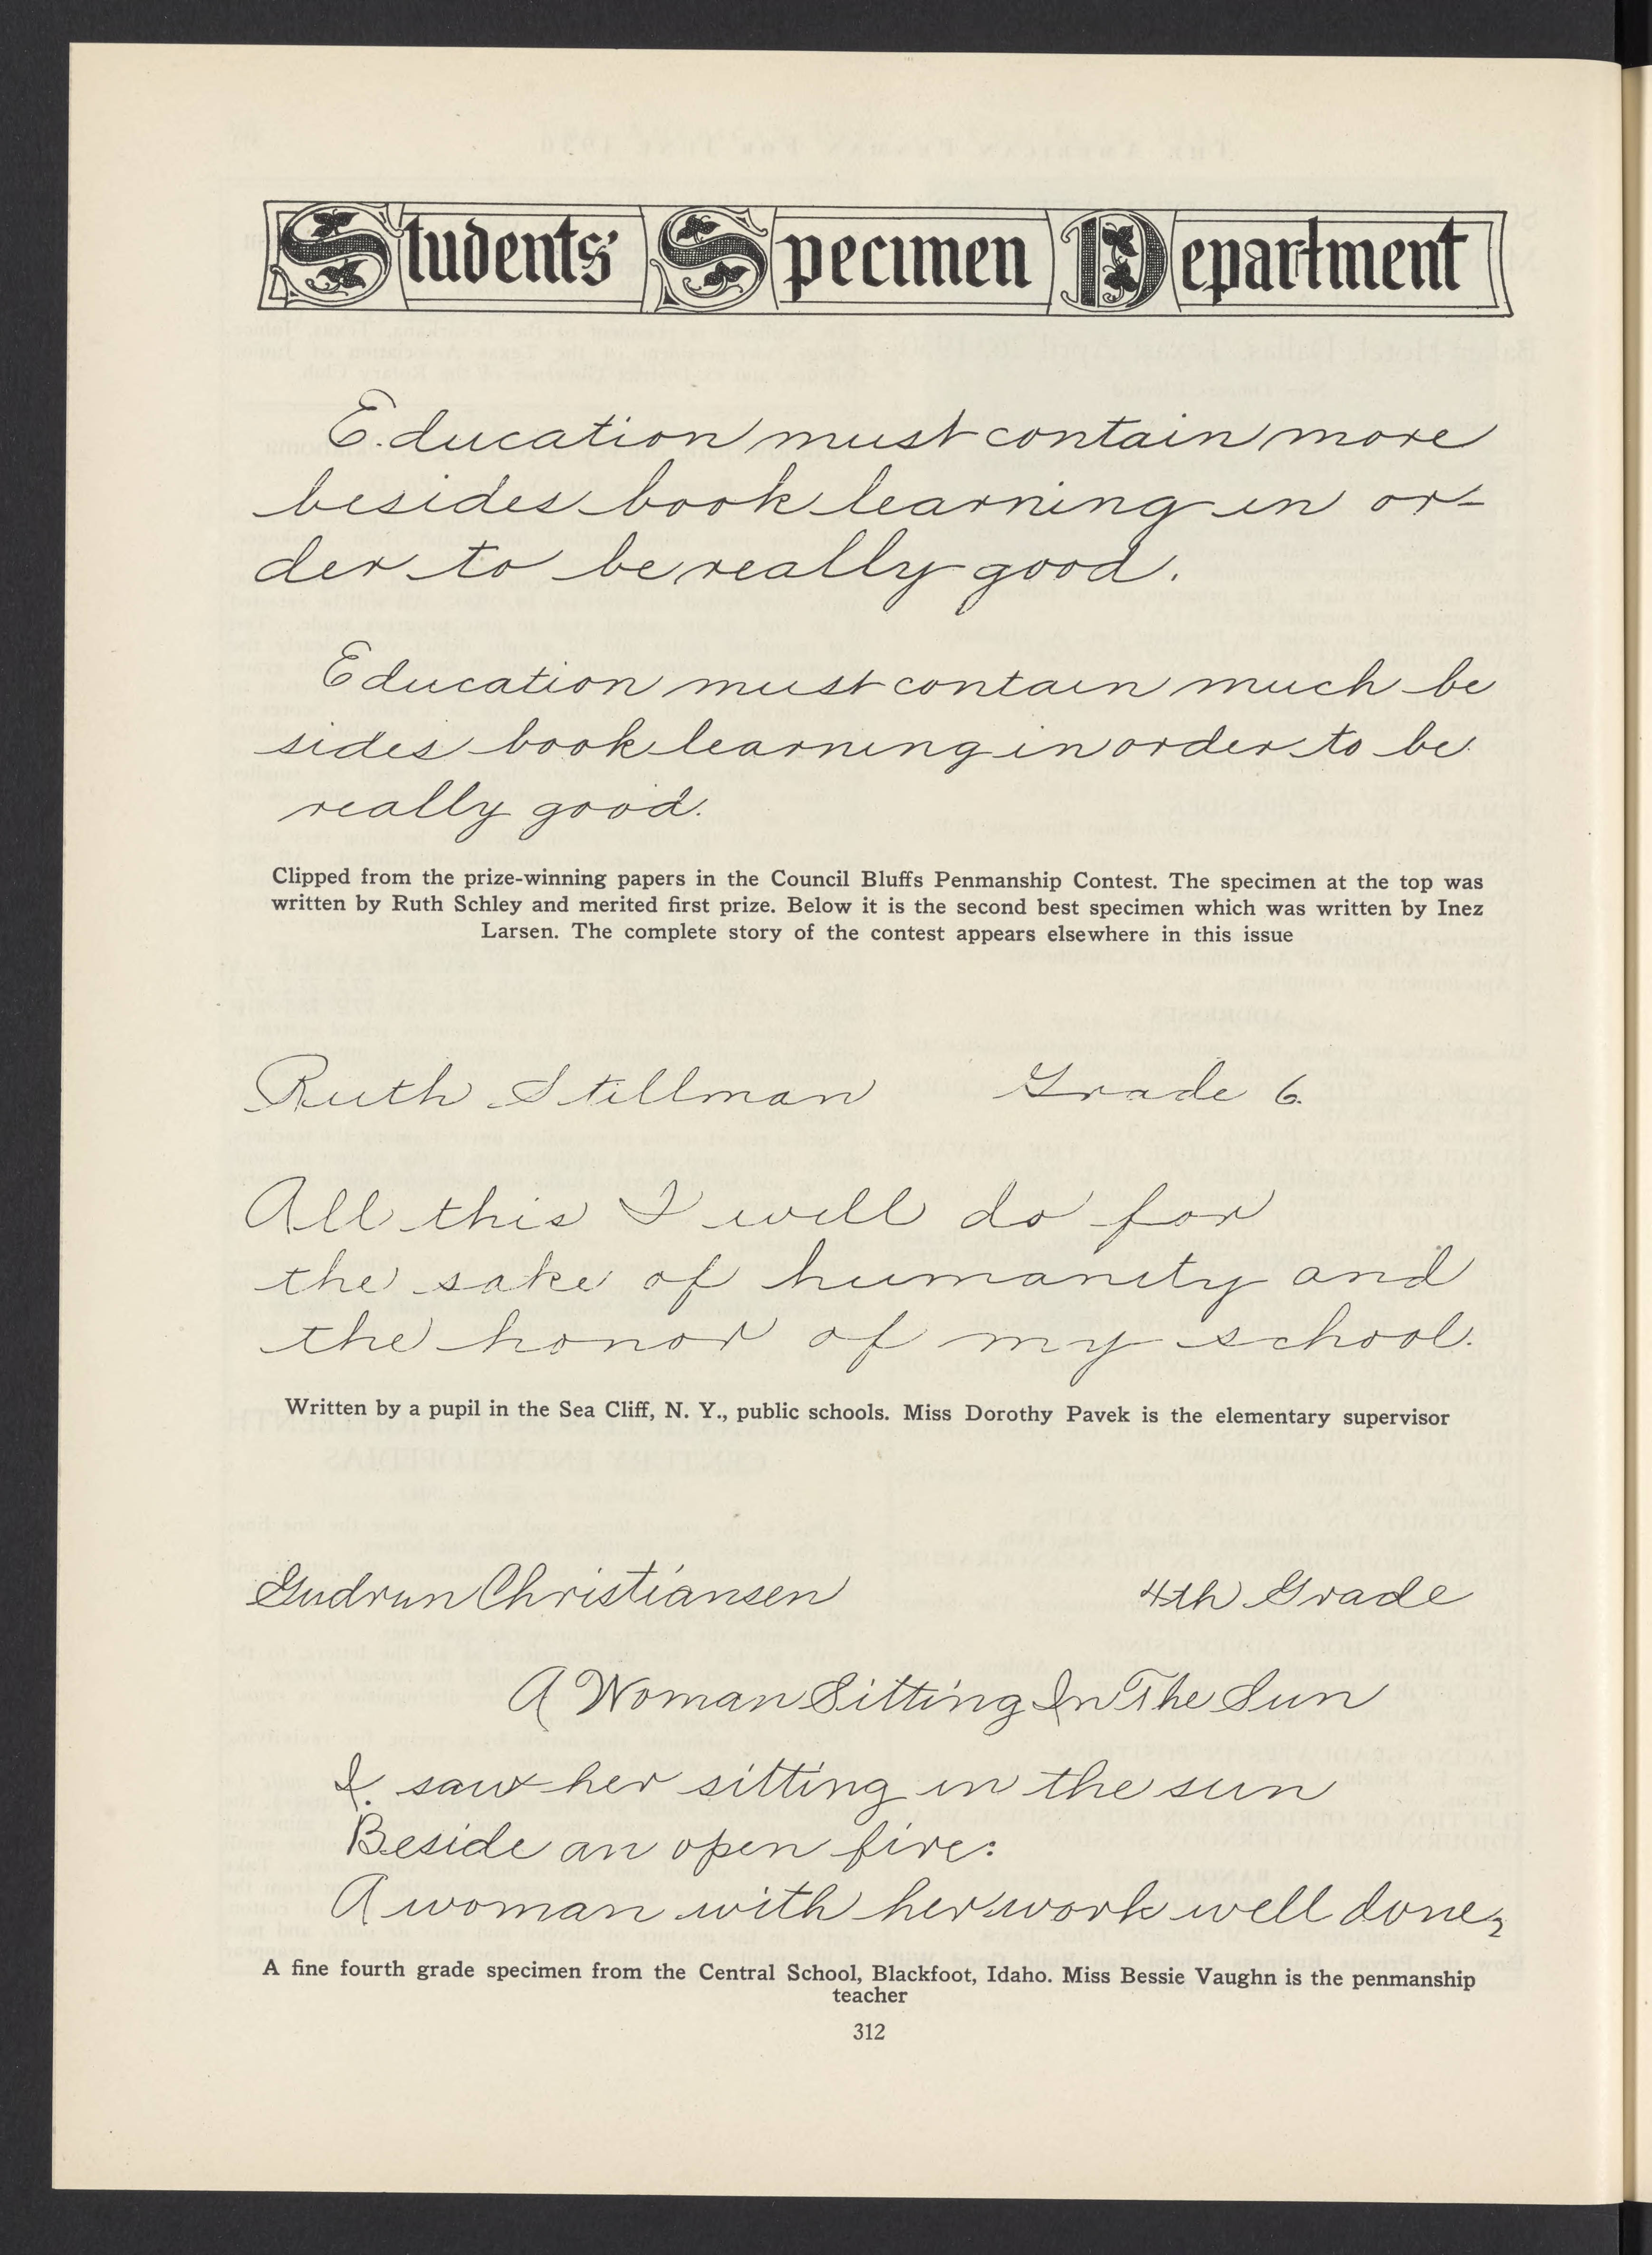 Students' Specimen Department
Education must contain more
besides book learning in or-
der to be really good.
Education must contain much be
sides book learning in order to be
really good.
Clipped from the prize-winning papers in the Council Bluffs Penmanship Contest. The specimen at the top was
written by Ruth Schley and merited first prize. Below it is the second best specimen which was written by Inez
Larsen. The complete story of the contest appears elsewhere in this issue
Ruth Stillman Grade 6.
All this I will do for
the sake of humanity and
the honor of my school.
Written by a pupil in the Sea Cliff, N. Y., public schools. Miss Dorothy Pavek is the elementary supervisor
Gudrun Christiansen 4th Grade
A Woman Sitting In The Sun
I saw her sitting in the sun
Beside an open fire:
A woman with her work well done,
A fine fourth grade specimen from the Central School, Blackfoot, Idaho. Miss Bessie Vaughn is the penmanship
teacher
312